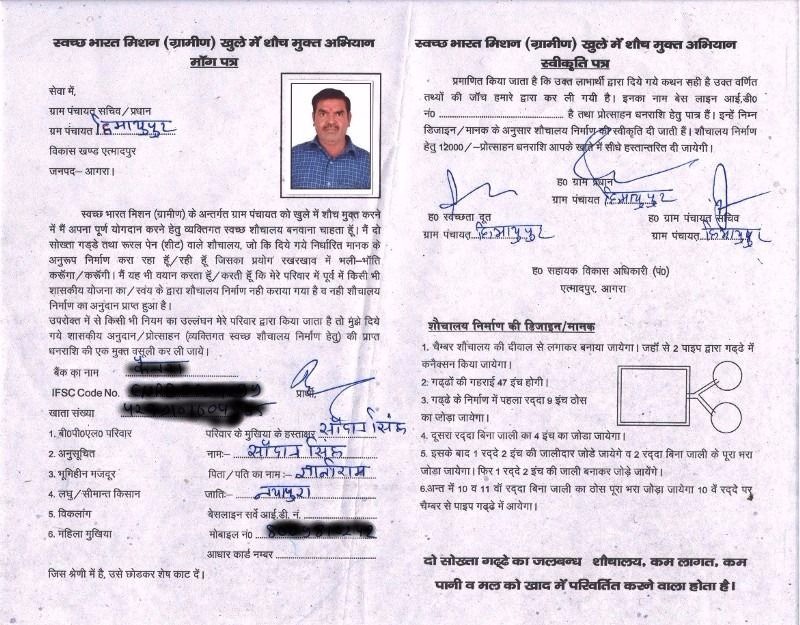 स्वच्छ भारत मिशन (ग्रामीण) खुले में शौच मुक्त अभियान
मॉंग पत्र
सेवा में,
ग्राम पंचायत सचिव/प्रधान
ग्रम पंचायत
विकास खण्ड एत्मादपुर
जनपद– आगरा।
स्वच्छ भारत मिशन (ग्रामीण) के अन्तर्गत ग्राम पंचायत को खुले में शौच मुक्त करने
में मैं अपना पूर्ण योगदान करने हेतु व्यक्तिगत स्वच्छ शौचालय बनवाना चाहता हूँ। मैं दो
सोख्ता गड्डे तथा रूरल पेन (शीट) वाले शौचालय, जो कि दिये गये निर्धारित मानक के
अनुरूप निर्माण करा रहा हूँ/रही हूँ जिसका प्रयोग रखरखाव में भली–भाँति
करूँगा/करूँगी। मैं यह भी वायान करता हूँ/करती हूँ कि मेरे परिवार में पूर्व में किसी भी
शासकीय योजना का/स्वंय के द्वारा शौचालय निर्माण नही कराया गया है व नही शौचालय
निर्माण का अनुंदान प्राप्त हुआ है।
उपरोक्त में से किसी भी नियम का उल्लंघन मेरे परिवार द्वारा किया जाता है तो मुंझे दिये
गये शासकीय अनुदान/प्रोत्साहन (व्यक्तिगत स्वच्छ शौचालय निर्माण हेतु) की प्राप्त
धनराशि की एक मुक्त वसूली कर ली जाये।
बैंक का नाम
IFSC Code No. प्रार्थी
खाता संख्या
1. बी0पी0एल0 परिवार परिवार के मुखिया के हस्ताक्षर
2. अनुसूचित नामः–
3. भूमिहीन मजदूर पिता/पति का नाम :–
4. लघु/सीमान्त किसान जातिः–
5. विकलांग बेसलाइन सर्वे आई.डी. नं.
6. महिला मुखिया मोबाइल नं0
आधार कार्ड नम्बर
जिस श्रेणी में है, उसे छोडकर शेष काट दें।
स्वच्छ भारत मिशन (ग्रामीण) खुले में शौच मुक्त अभियान
स्वीकृति पत्र
प्रमाणित किया जाता है कि उक्त लाभार्थी द्वारा दिये गये कथन सही है उक्त वर्णित
तथ्यों की जॉच हमारे द्वारा कर ली गयी है। इनका नाम बेस लाइन आई.डी0
नं0 है तथा प्रोत्साहन धनराशि हेतु पात्र हैं। इन्हें निम्न
डिजाइन/मानक के अनुसार शौचालय निर्माण की स्वीकृति दी जाती हैं। शौचालय निर्माण
हेतु 12000/–प्रोत्साहन धनराशि आपके खाते में सीधे हस्तान्तरित दी जायेगी।
ह0 ग्राम प्रधान
ग्राम पंचायत
ह0 स्वच्छता दूत ह0 ग्राम पंचायत सचिव
ग्राम पंचायत ग्राम पंचायत
ह0 सहायक विकास अधिकारी (पं0)
एत्मादपुर, आगरा
शौचालय निर्माण की डिजाइन/मानक
1. चैम्बर शौचालय की दीवाल से लगाकर बनाया जायेगा। जहाँ से 2 पाइप द्वारा गढ्ढे में
कनैक्सन किया जायेगा।
2: गढ्ढों की गहराई 47 इंच होगी।
3. गढ्ढे के निर्माण में पहला रद्दा 9 इंच ठोस
का जोड़ा जायेगा।
4. दूसरा रद्दा बिना जाली का 4 इंच का जोडा जायेगा।
5. इसके बाद 1 रद्दे 2 इंच की जालीदार जोडे जायेगे व 2 रद्दा बिना जाली के पूरा भरा
जोडा जायेगा। फिर 1 रद्दे 2 इंच की जाली बनाकर जोड़े जायेंगे।
6.अन्त में 10 व 11 वॉ रद्दा बिना जाली का ठोस पूरा भरा जोड़ा जायेगा 10 वें रद्दे पर
चैम्बर से पाइप गढ्ढे में आयेगा।
दो सोख्ता गढ्ढे का जलबन्ध शौचालय, कम लागत, कम
पानी व मल को खाद में परिवर्तित करने वाला होता है।